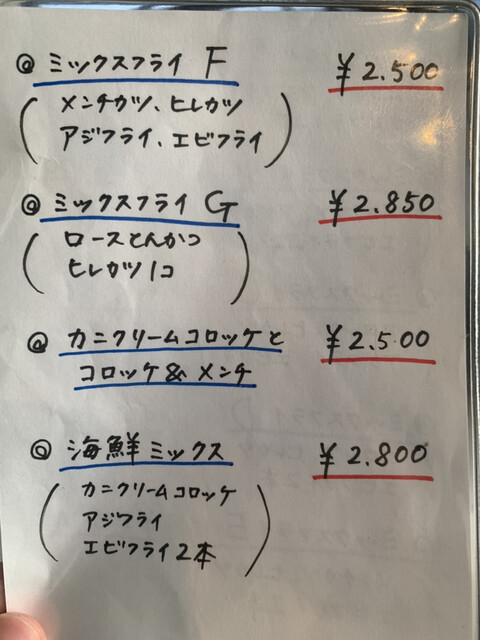 ◎ ミックスフライ F ¥2.500
(メンチカツ、ヒレカツ
アジフライ、エビフライ)
◎ ミックスフライ G ¥2.850
(ロースとんかつ
ヒレカツ1コ)
◎ カニクリームコロッケと ¥2.500
コロッケ&メンチ
◎ 海鮮ミックス ¥2.800
(カニクリームコロッケ
アジフライ
エビフライ2本)